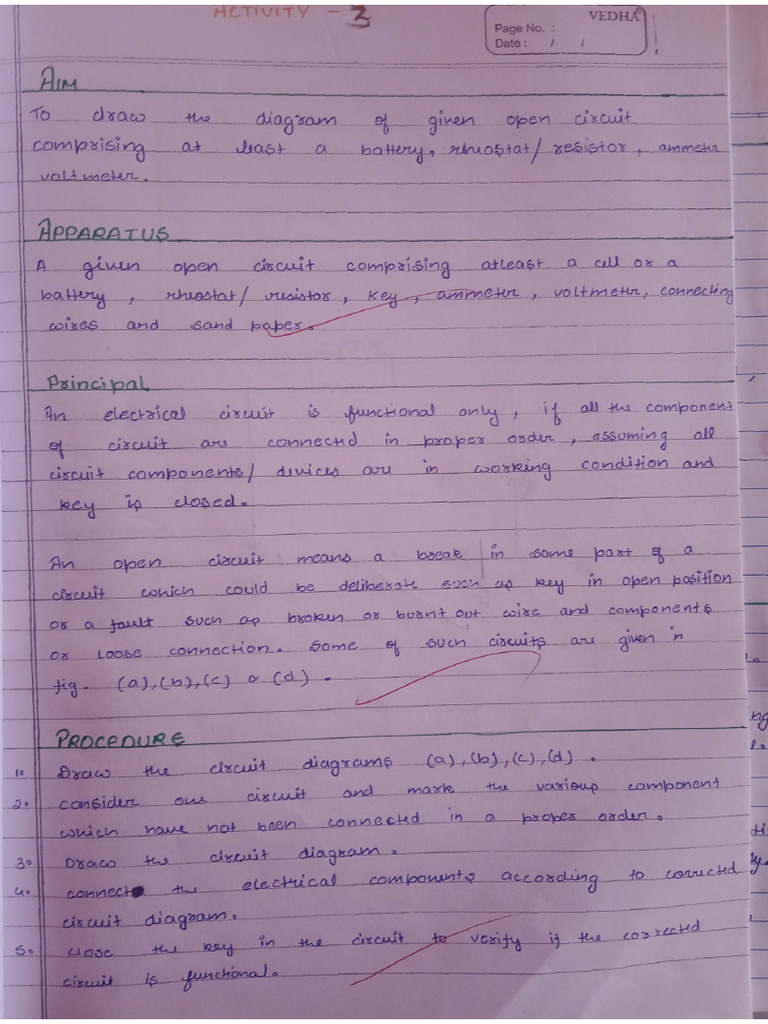 ACTIVITY - 3
VEDHA
Page No. :
Date : / /
AIM
To draw the diagram of given open circuit
comprising at least a battery, rheostat/ resistor, ammeter
voltmeter.
APPARATUS
A given open circuit comprising atleast a cell or a
battery, rheostat/ resistor, key, ammeter, voltmeter, connecting
wires and sand paper.
Principal
An electrical circuit is functional only, if all the component
of circuit are connected in proper order, assuming all
circuit components/ devices are in working condition and
key is closed.
An open circuit means a break in some part of a
circuit which could be deliberate such as key in open position
or a fault such as broken or burnt out wire and components
or loose connection. Some of such circuits are given in
fig. (a), (b), (c) & (d).
PROCEDURE
1. Draw the circuit diagrams (a), (b), (c), (d).
2. consider one circuit and mark the various component
which have not been connected in a proper order.
3. Draw the circuit diagram.
4. connect the electrical components according to corrected
circuit diagram.
5. close the key in the circuit to verify if the corrected
circuit is functional.